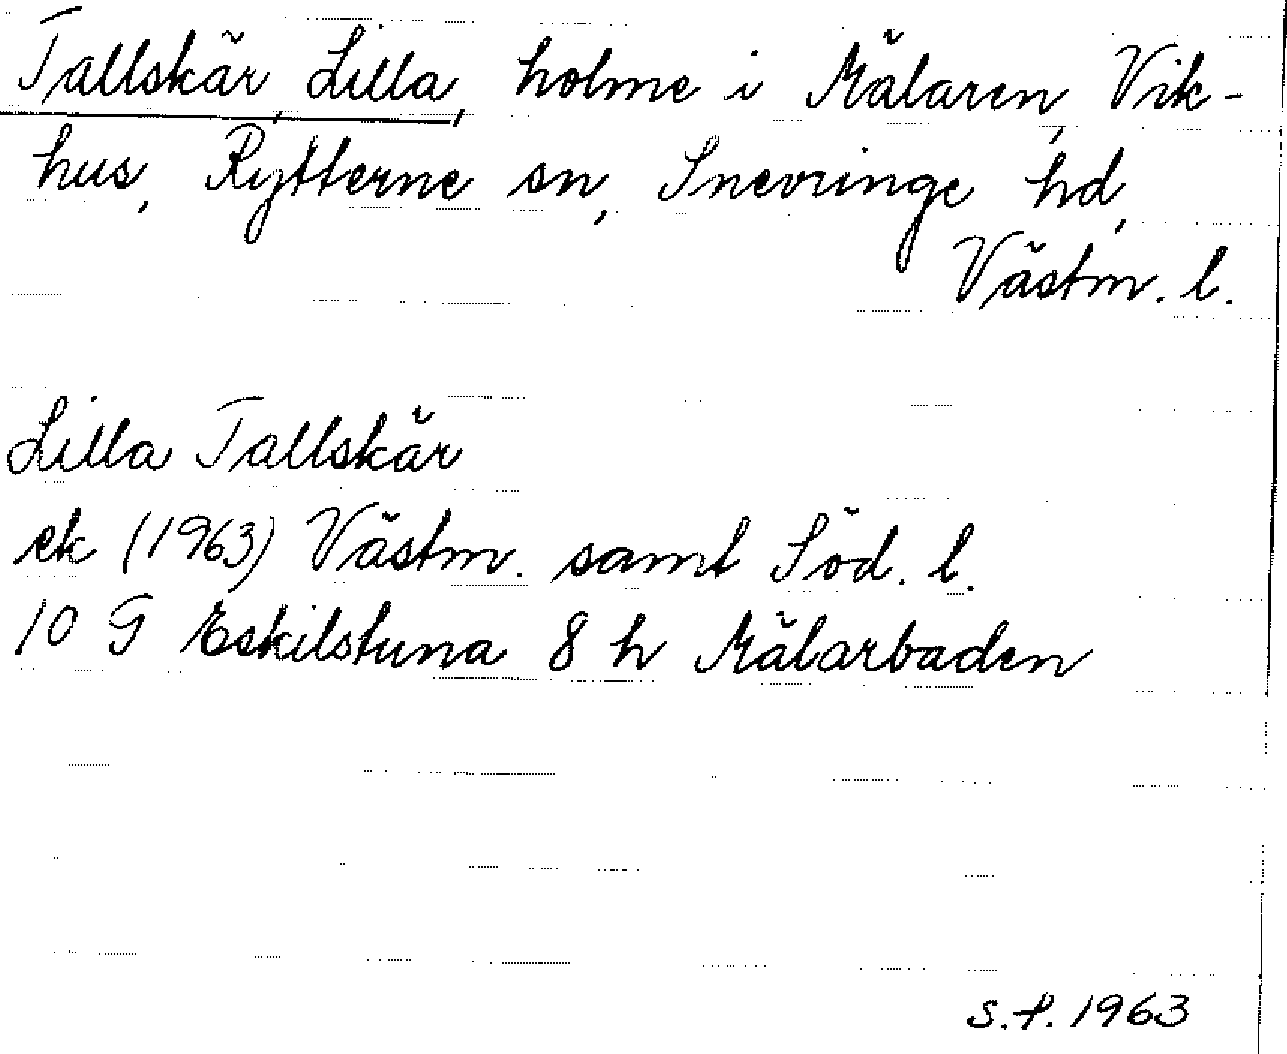 Tallskär, Lilla, holme i Mälaren, Vik-
hus, Rytterne sn, Snevringe hd,
Västm. l.
Lilla Tallskär
ek (1963) Västm. samt Söd. l.
10 G Eskilstuna 8 h Mälarbaden
s.f. 1963